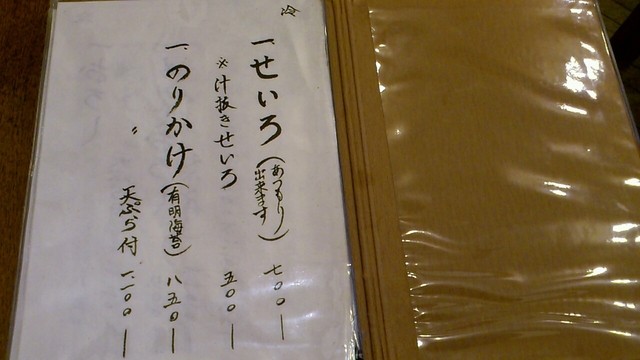 冷
一、せいろ(あつもり出来ます) 七〇〇ー
※汁抜きせいろ 五〇〇ー
一、のりかけ(有明海苔) 八五〇ー
〃 天ぷら付 一、一〇〇ー